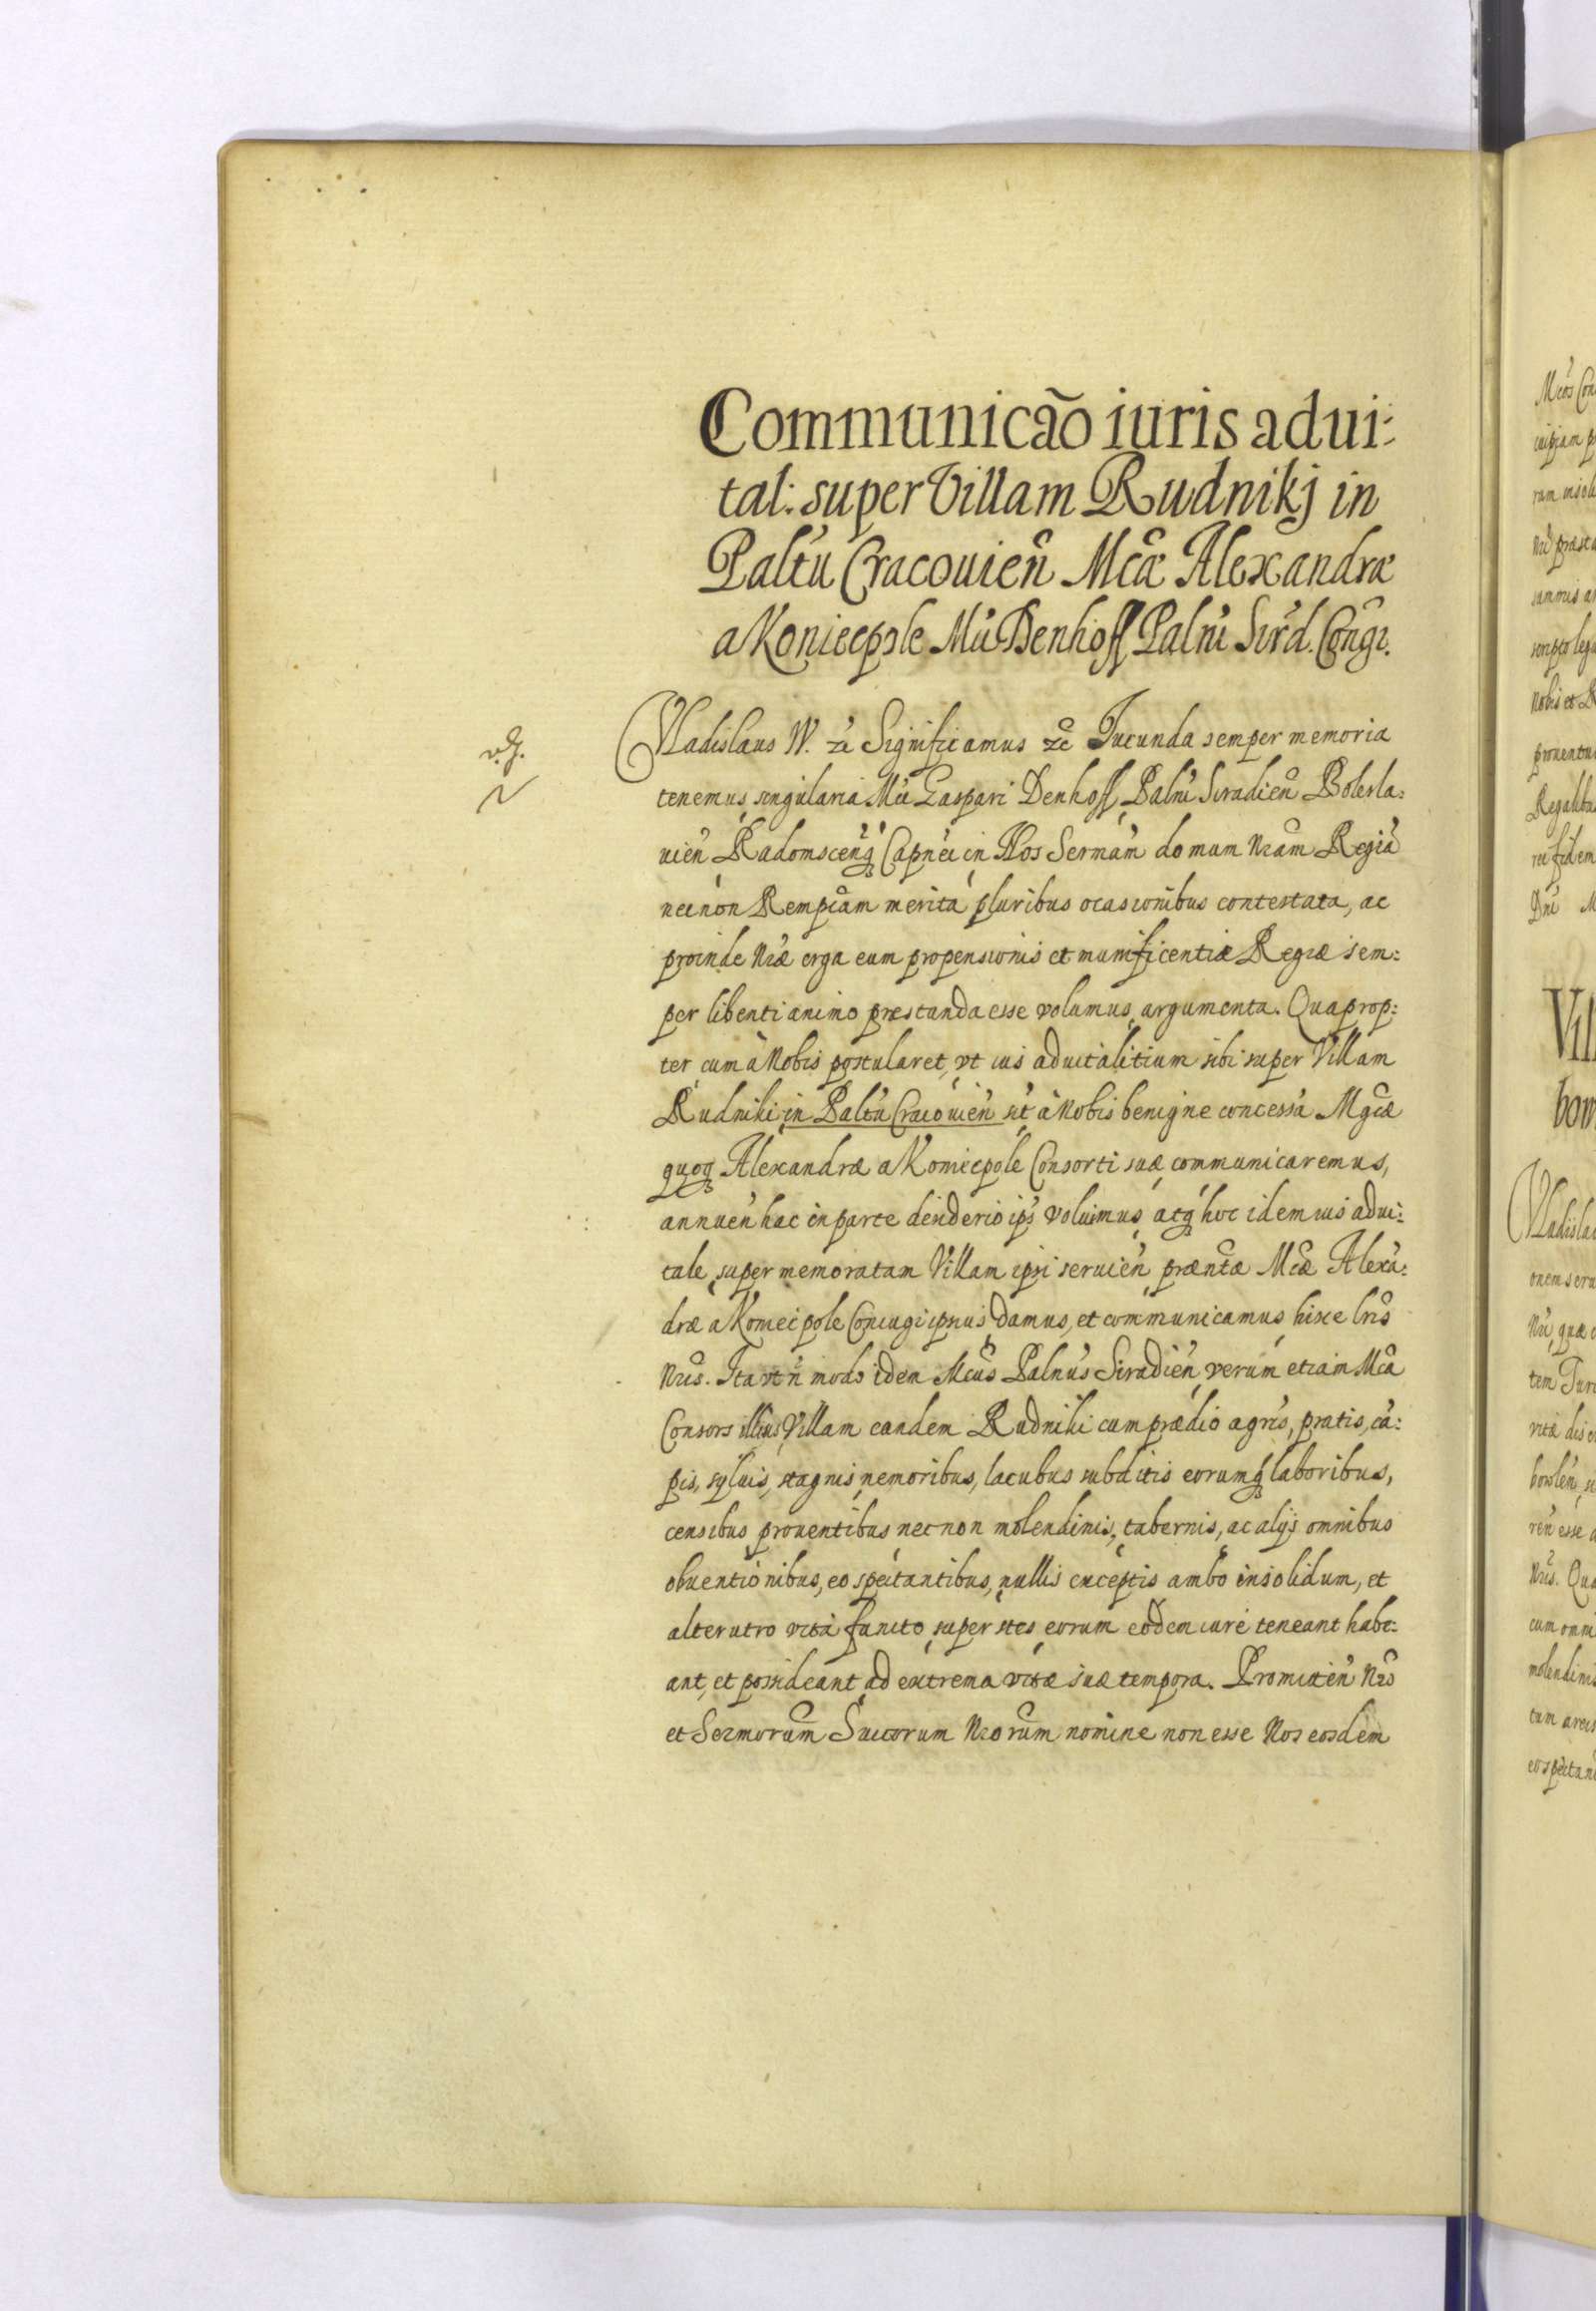 Communicão iuris adui:
tal: super Villam Rudnikj in
Paltu Cracouien̄ Mcæ Alexandræ
a Koniecpole Mci Denhoff Palni Sird. Congi.
Vladislaus IV. zc Significamus zc Jucunda semper memoria
tenemus singularia Mci Gaspari Denhoff Palni Siradien̄ Boles la:
uien̄ Radomscenq Capnei in Nos Sermam̄ domum Nram Regia
necnon Rempcam merita pluribus ocasionibus contestata, ac
proinde Nræ erga eum propensionis et munificentiæ Regiæ sem:
per libenti animo præstanda esse volumus argumenta. Quaprop:
ter cum à Nobis postularet, vt ius aduitalitium sibi super Villam
Rudniki in Paltu Cracouien̄ sit à Nobis benigne concessa Mgcæ
quoq Alexandræ a Koniecpole Consorti suæ communicaremus,
annuen̄ hac in parte desiderio ips voluimus, atq hoc idem ius adui:
tale super memoratam Villam ipsi seruien̄ præntæ Mcæ Alexa:
dræ a Koniecpole Coniugi ipsius damus, et communicamus hisce lris
Nris. Ita vt n̄ modo idem Mcus Palnus Siradien̄ verum etiam Mca
Consors illius Villam eandem Rudniki cum prædio agris, pratis, cā:
pis, syluis, stagnis nemoribus, lacubus subditis eorumq laboribus,
censibus prouentibus necnon molendinis, tabernis, ac alijs omnibus
obuentionibus, eo spectantibus, nullis exceptis ambo insolidum, et
alterutro vita functo superstes eorum eodem iure teneant habe:
ant, et possideant ad extrema vitæ suæ tempora. Promitten̄ Nro
et Sermorum Succorum Nrorum nomine non esse Nos eosdem
Mcos Con
Vladisla